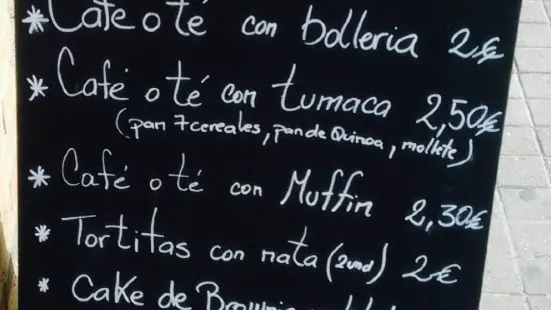 * Café o té con bolleria 2€
* Café o té con tumaca 2,50€
(pan 7cereales, pan de Quinoa, mollete)
* Café o té con Muffin 2,30€
* Tortitas con nata (2und) 2€
* Cake de Brownie